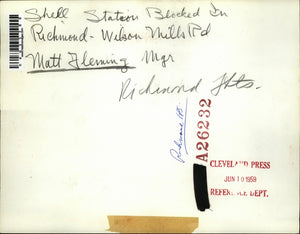 Shell Station Blocked In
Richmond - Wilson Mills Rd
Matt Fleming Mgr
Richmond Hts.
A26232
CLEVELAND PRESS
JUN 10 1959
REFERENCE DEPT.